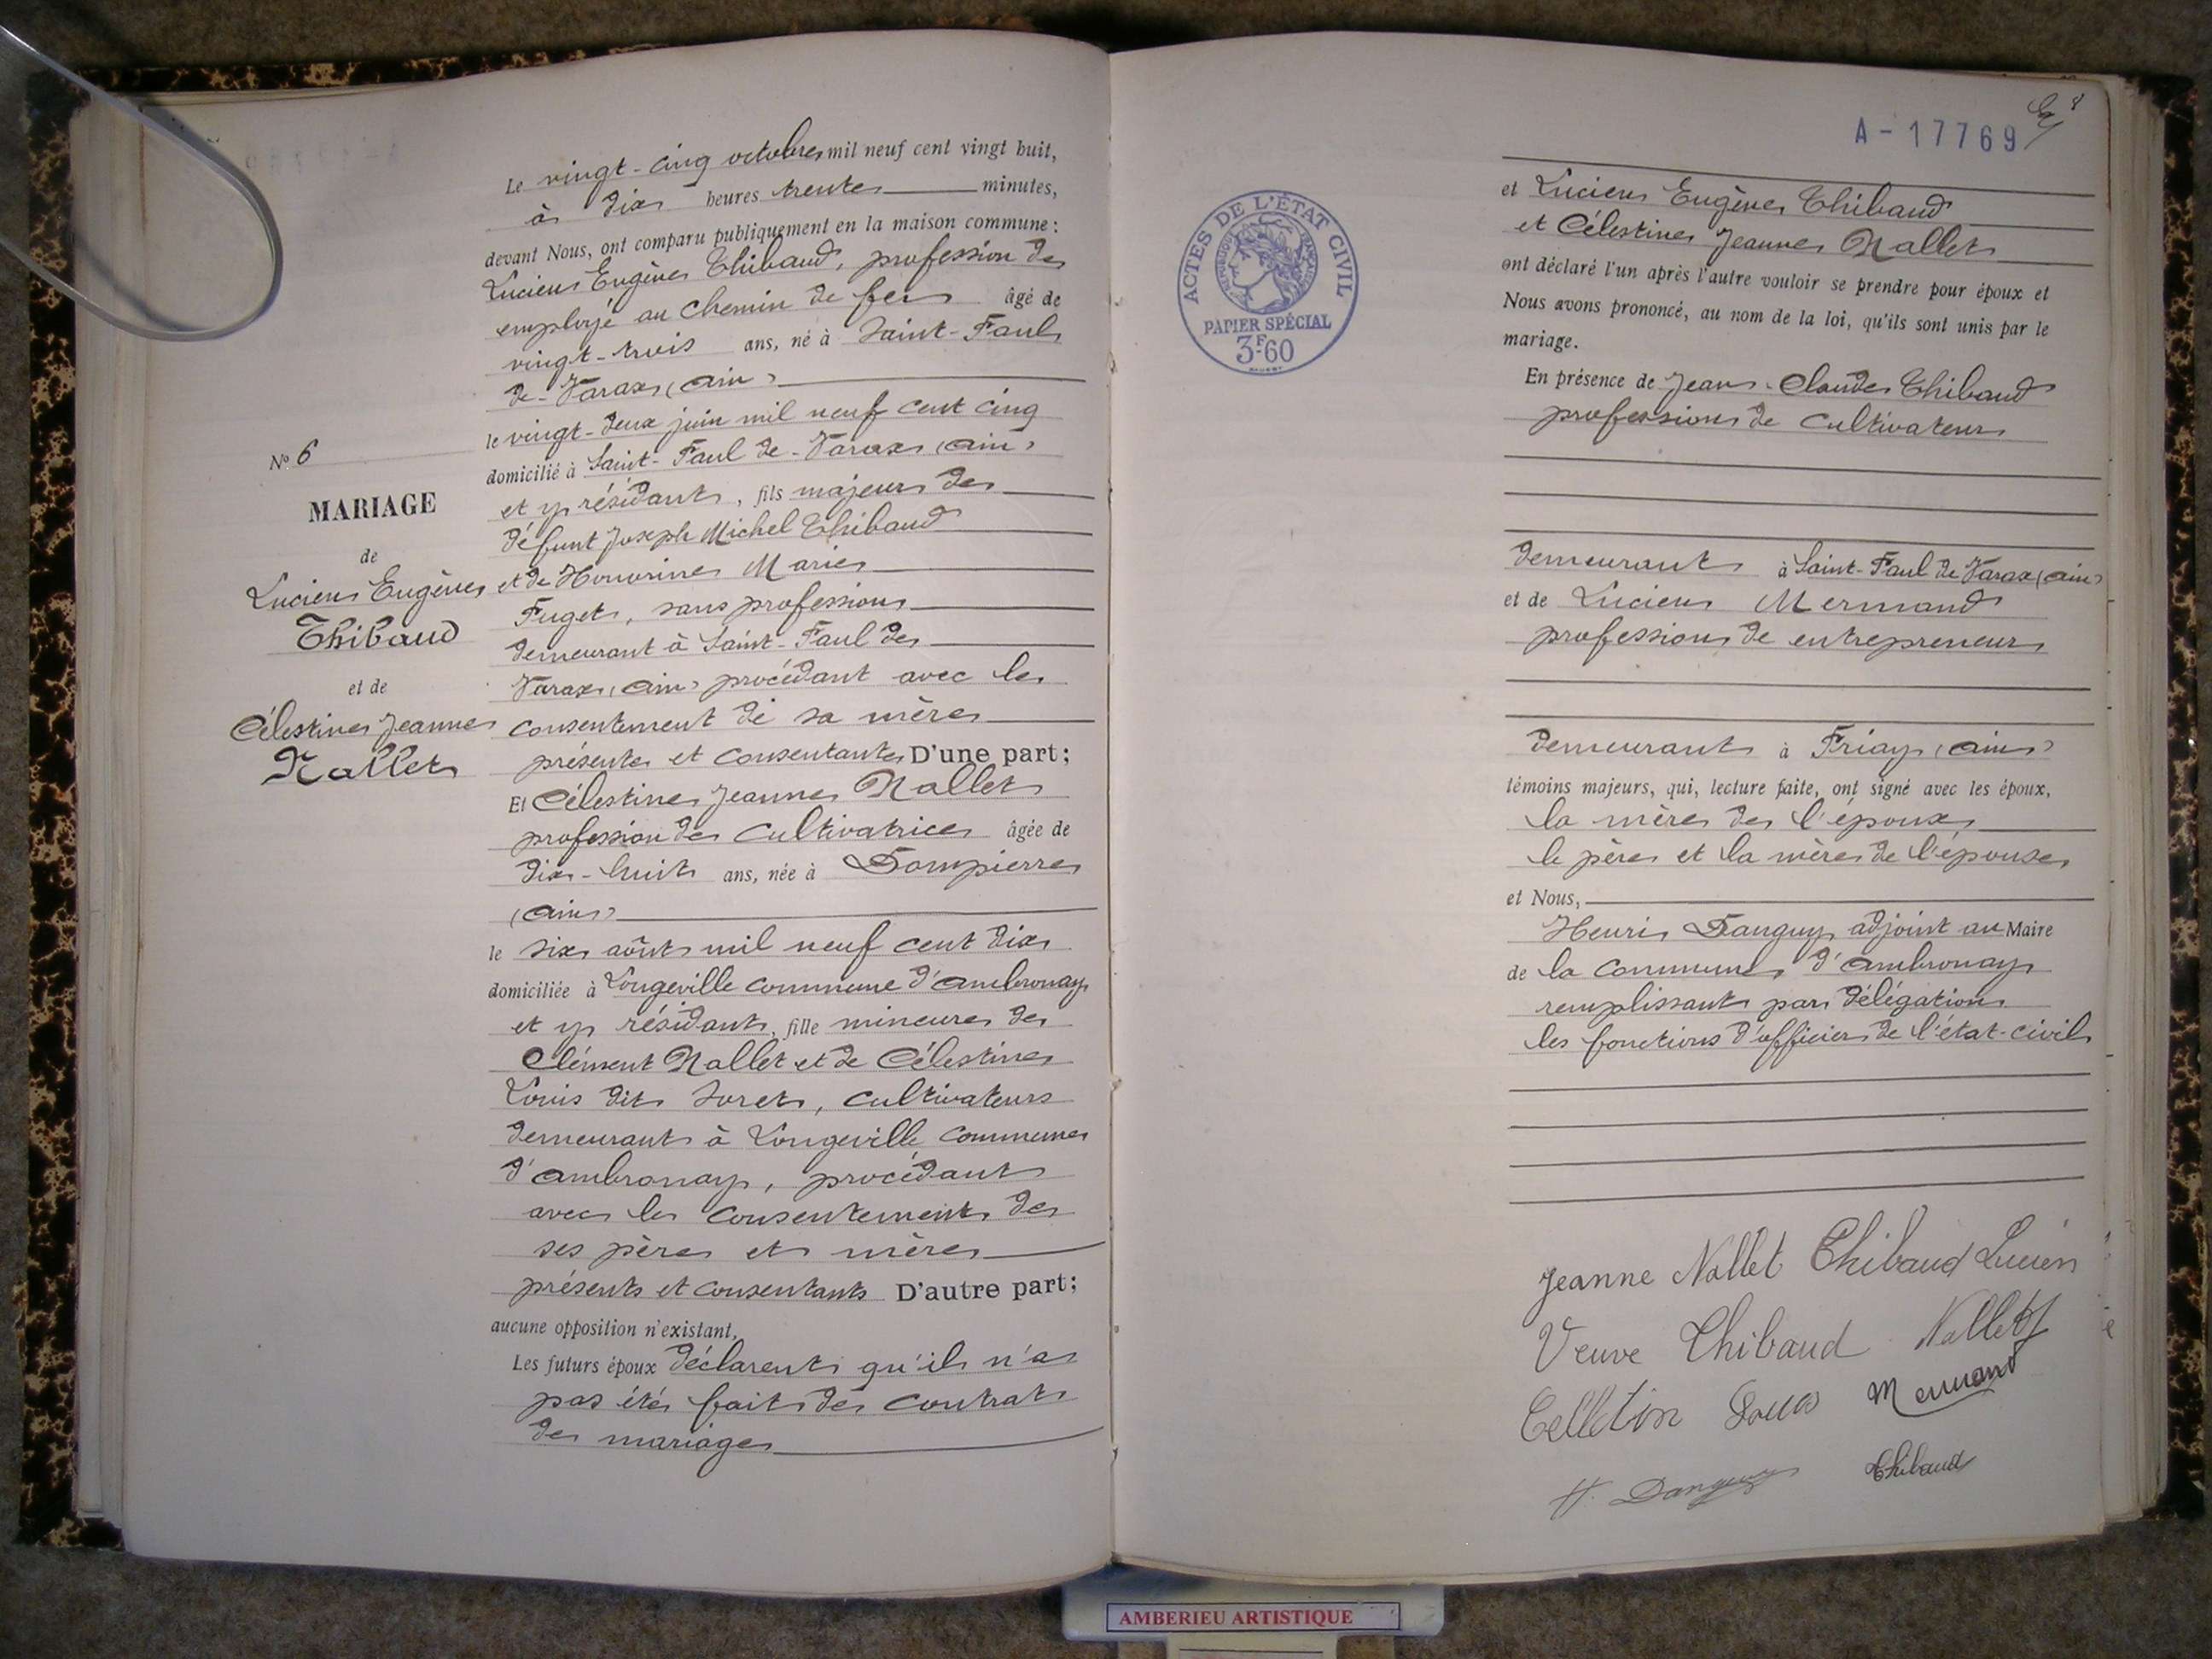 N° 6
MARIAGE
de
Lucien Eugène
Thibaud
et de
Célestine Jeanne
Nallet
Le vingt-cinq octobre mil neuf cent vingt huit,
à dix heures trente minutes,
devant Nous, ont comparu publiquement en la maison commune :
Lucien Eugène Thibaud, profession de
employé au chemin de fer âgé de
vingt-trois ans, né à Saint-Paul
de-Varax (Ain)
le vingt-deux juin mil neuf cent cinq
domicilié à Saint-Paul de-Varax (Ain)
et y résidant, fils majeur de
défunt Joseph Michel Thibaud
et de Honorine Marie
Puget, sans profession
demeurant à Saint-Paul de
Varax (Ain) procédant avec le
consentement de sa mère
présente et consentante D'une part ;
Et Célestine Jeanne Nallet
profession de cultivatrice âgée de
dix-huit ans, née à Dompierre
(Ain)
le six août mil neuf cent dix
domiciliée à Longeville commune d'Ambronay
et y résidant, fille mineure de
Clément Nallet et de Célestine
Louis dit Soret, cultivateurs
demeurant à Longeville commune
d'Ambronay, procédant
avec le consentement de
ses père et mère
présents et consentants D'autre part ;
aucune opposition n'existant,
Les futurs époux déclarent qu'il n'a
pas été fait de contrat
de mariage
A-17769
8
ACTES DE L'ÉTAT CIVIL
RÉPUBLIQUE FRANÇAISE
PAPIER SPÉCIAL
3F60
et Lucien Eugène Thibaud
et Célestine Jeanne Nallet
ont déclaré l'un après l'autre vouloir se prendre pour époux et
Nous avons prononcé, au nom de la loi, qu'ils sont unis par le
mariage.
En présence de Jean-Claude Thibaud
profession de cultivateur
demeurant à Saint-Paul de Varax (Ain)
et de Lucien Mermand
profession de entrepreneur
demeurant à Priay (Ain)
témoins majeurs, qui, lecture faite, ont signé avec les époux,
la mère de l'époux
le père et la mère de l'épouse
et Nous,
Henri Danguy adjoint au Maire
de la commune d'Ambronay
remplissant par délégation
les fonctions d'officier de l'état-civil
Jeanne Nallet Thibaud Lucien
Veuve Thibaud Nallet
Mermand
H. Danguy Thibaud
AMBERIEU ARTISTIQUE